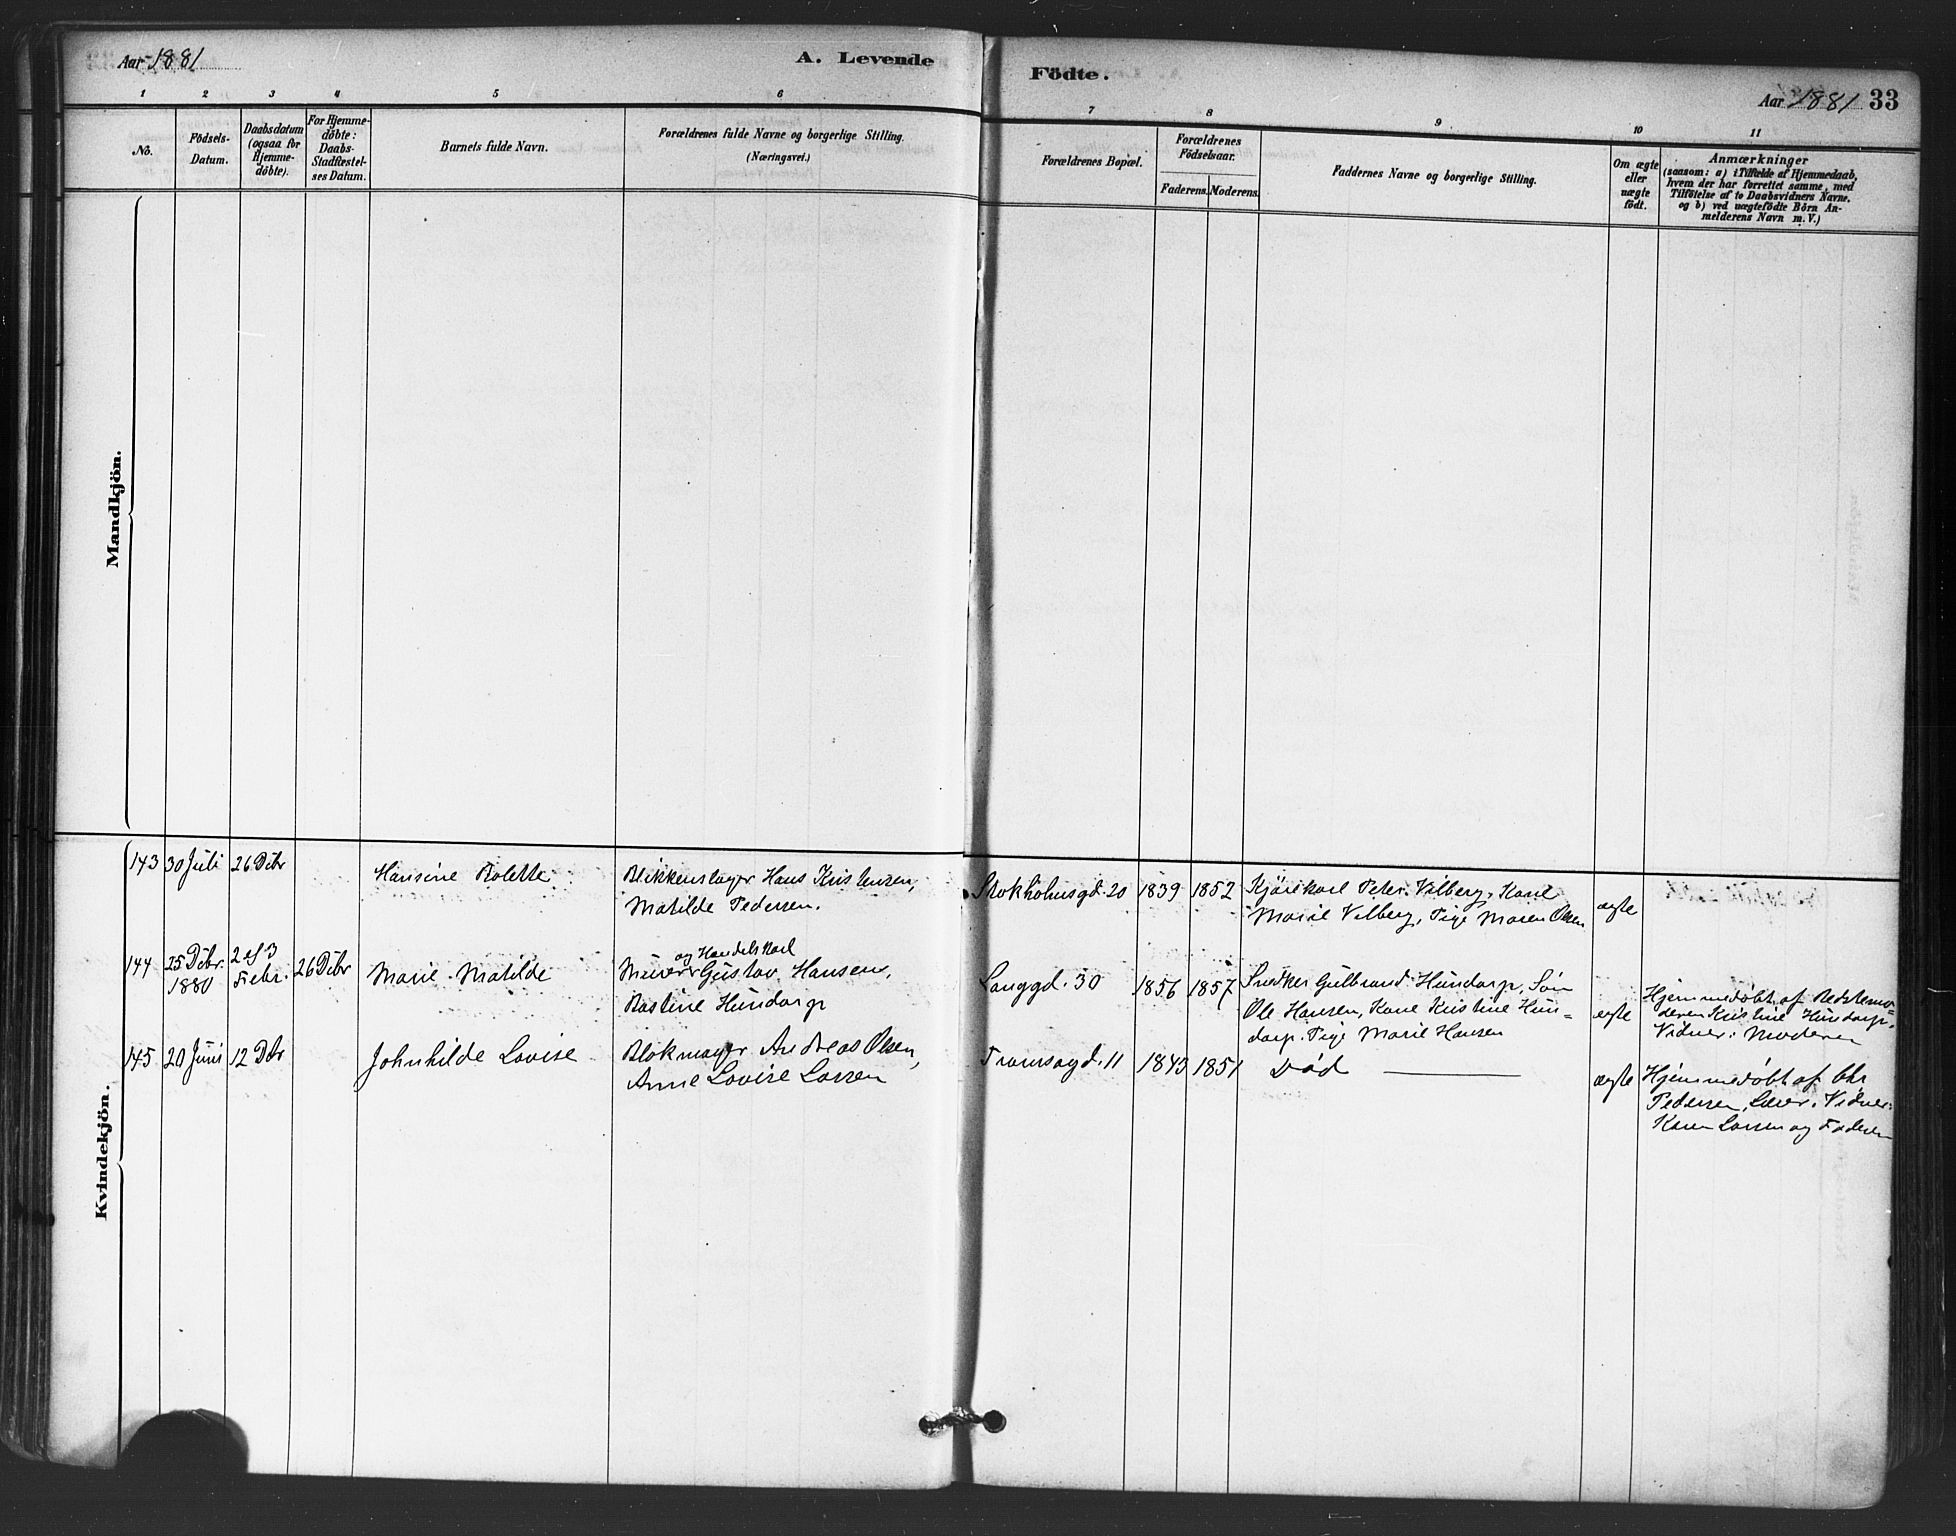 Aar 1881
A. Levende
Födte.
Aar 1881 33
1 2 3 4 5 6 7 8 9 10 11
No.
Födsels-
Datum.
Daabsdatum
(ogsaa for
Hjemme-
døbte).
For Hjemme-
døbte:
Daabs-
Stadfæstel-
ses Datum.
Barnets fulde Navn.
Forældrenes fulde Navne og borgerlige Stilling.
(Næringsvei.)
Forældrenes Bopæl.
Forældrenes
Födselsaar.
Faderens. Moderens.
Faddernes Navne og borgerlige Stilling.
Om ægte
eller
uægte
födt.
Anmærkninger
(saasom: a) i Tilfælde af Hjemmedaab,
hvem der har forrettet samme, med
Tilföielse af to Daabsvidners Navne.
og b) ved uægtefödte Börn An-
melderens Navn m. V.)
Mandkjön.
Kvindekjön.
143 30 Juli 26 Debr Hansine Bolette Blikkenslager Hans Kristensen,
Matilde Pedersen.
Stokholmsgd. 20 1839 1852 Kjørekarl Peter Vilberg, Kone
Marie Vilberg, Pige Maren Olsen
ægte
144 25 Debr. 1880 2 Febr. 26 Debr Marie Matilde og Handelskarl
Murer Gustav Hansen,
Bastine Hundorp
Langgd. 30 1856 1857 Snedker Gulbrand Hundorp, Søn
Ole Hansen, Kone Kristine Hun=
dorp. Pige Marie Hansen
ægte
Hjemmedøbt af Bedstemo=
deren Kristine Hundorp,
Vidner: Moderen
145 20 Juni 12 Dbr Johnhilde Lovise Blokmager Andreas Olsen,
Anne Lovise Larsen
Tromsøgd. 11 1843 1851 Død
ægte
Hjemmedøbt af Chr
Pedersen, Lærer. Vidner:
Karen Larsen og Faderen